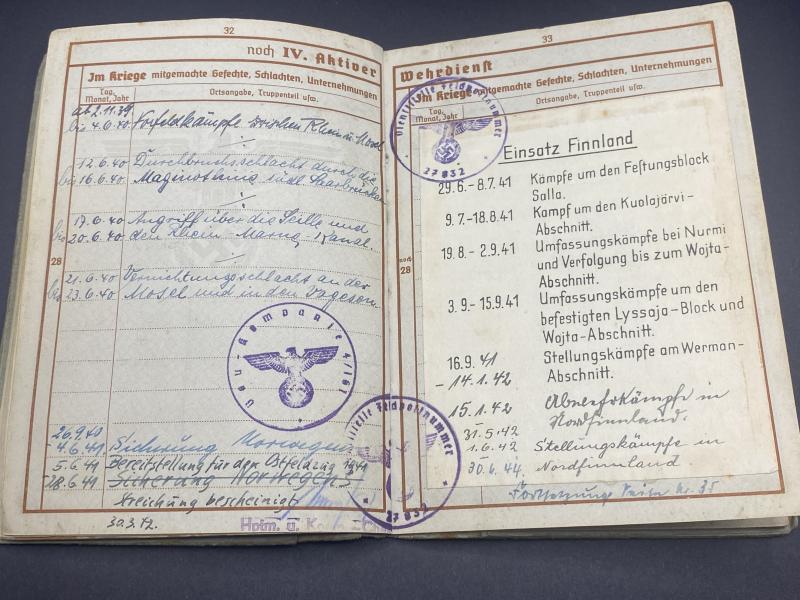 32
noch IV. Aktiver
Im Kriege mitgemachte Gefechte, Schlachten, Unternehmungen
Tag, Monat, Jahr
Ortsangabe, Truppenteil usw.
ab 2.11.39
bis 4.6.40 Vorfeldkämpfe zwischen Rhein u. Mosel
12.6.40 Durchbruchsschlacht durch die
bis 16.6.40 Maginotlinie südl. Saarbrücken
17.6.40 Angriff über die Seille und
bis 20.6.40 den Rhein-Marne-Kanal.
28
21.6.40 Vernichtungsschlacht an der
bis 23.6.40 Mosel und in den Vogesen
Bau-Kompanie 4/161
26.9.40
4.6.41 Sicherung Norwegens
5.6.41 Bereitstellung für den Ostfeldzug 1941
28.6.41 Sicherung Norwegens
Streichung bescheinigt
30.3.42.
Hptm. u.
33
Wehrdienst
Im Kriege mitgemachte Gefechte, Schlachten, Unternehmungen
Tag, Monat, Jahr
Ortsangabe, Truppenteil usw.
Dienststelle Feldpostnummer
27832
Einsatz Finnland
29.6.- 8.7.41 Kämpfe um den Festungsblock
Salla.
9.7.-18.8.41 Kampf um den Kuolajärvi-
Abschnitt.
19.8.- 2.9.41 Umfassungskämpfe bei Nurmi
noch 28
und Verfolgung bis zum Wojta-
Abschnitt.
3.9.- 15.9.41 Umfassungskämpfe um den
befestigten Lyssaja-Block und
Wojta-Abschnitt.
16.9.41 Stellungskämpfe am Werman-
- 14.1.42 Abschnitt.
15.1.42 Abwehrkämpfe in
31.5.42 Nordfinnland.
1.6.42 Stellungskämpfe in
30.6.44. Nordfinnland
Fortsetzung Seite Nr. 35
Dienststelle Feldpostnummer
27832